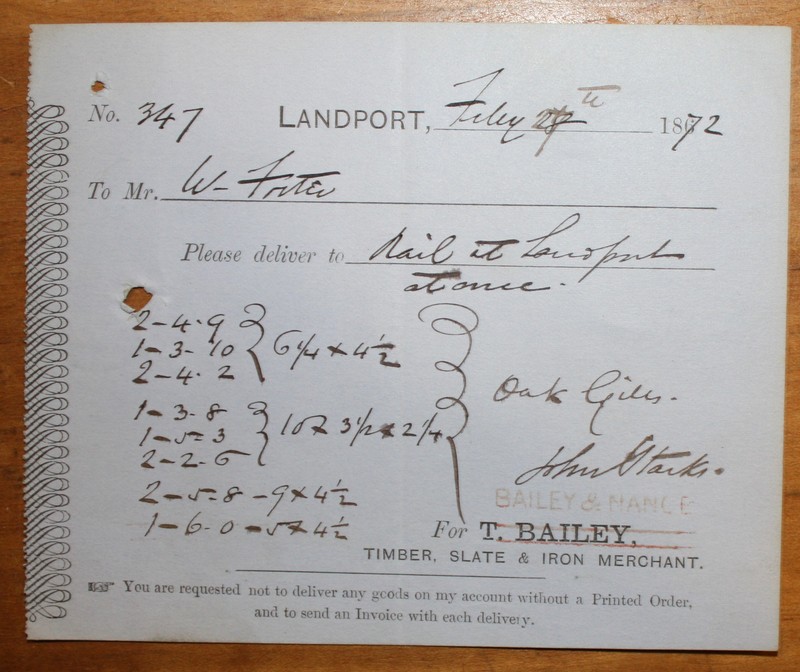 No. 347 LANDPORT, Feby 28th 1872
To Mr. W Foster
Please deliver to Rail at Landport
at once.
2-4-9
1-3-10 6 1/4 x 4 1/2
2-4-2
1-3-8
1-5-3 10 x 3 1/2 x 2 1/4
2-2-6
2-5-8 - 9 x 4 1/2
1-6-0 - 5 x 4 1/2
Oak
John Starks.
BAILEY & NANCE
For T. BAILEY,
TIMBER, SLATE & IRON MERCHANT.
You are requested not to deliver any goods on my account without a Printed Order,
and to send an Invoice with each delivery.